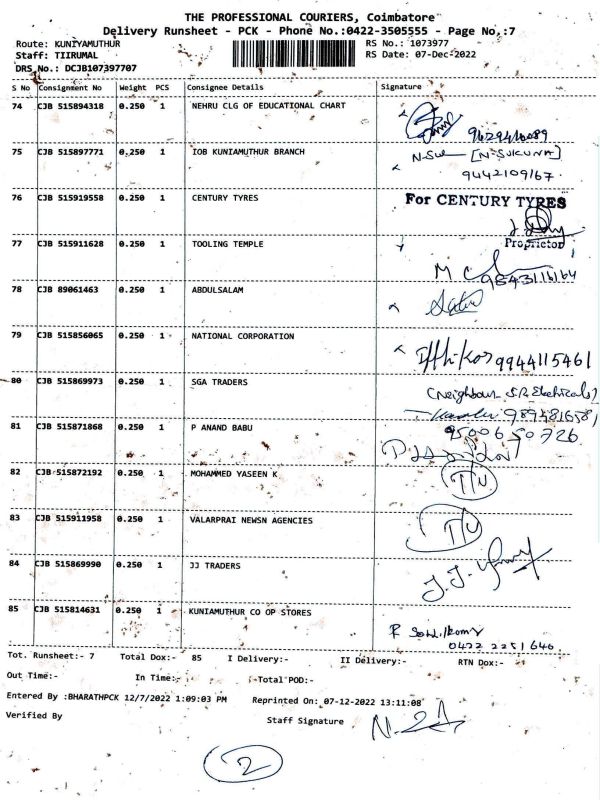 THE PROFESSIONAL COURIERS, Coimbatore
Delivery Runsheet - PCK - Phone No.:0422-3505555 - Page No.:7
Route: KUNIYAMUTHUR RS No.: 1073977
Staff: TIIRUMAL RS Date: 07-Dec-2022
DRS No.: DCJB107397707
S No Consignment No Weight PCS Consignee Details Signature
74 CJB 515894318 0.250 1 NEHRU CLG OF EDUCATIONAL CHART
9629410089
75 CJB 515897771 0.250 1 IOB KUNIAMUTHUR BRANCH [N-SUKUNA]
9442109167.
76 CJB 515919558 0.250 1 CENTURY TYRES For CENTURY TYRES
Proprietor
77 CJB 515911628 0.250 1 TOOLING TEMPLE
9843116164
78 CJB 89061463 0.250 1 ABDULSALAM
79 CJB 515856065 0.250 1 NATIONAL CORPORATION
9944115461
80 CJB 515869973 0.250 1 SGA TRADERS (neighbour S.R. Electricals)
81 CJB 515871868 0.250 1 P ANAND BABU 95006 50726
82 CJB 515872192 0.250 1 MOHAMMED YASEEN K T/N
83 CJB 515911958 0.250 1 VALARPRAI NEWSN AGENCIES T/N
84 CJB 515869990 0.250 1 JJ TRADERS
85 CJB 515814631 0.250 1 KUNIAMUTHUR CO OP STORES
0422 2251640
Tot. Runsheet:- 7 Total Dox:- 85 I Delivery:- II Delivery:- RTN Dox:-
Out Time:- In Time:- Total POD:-
Entered By :BHARATHPCK 12/7/2022 1:09:03 PM Reprinted On: 07-12-2022 13:11:08
Verified By Staff Signature
2